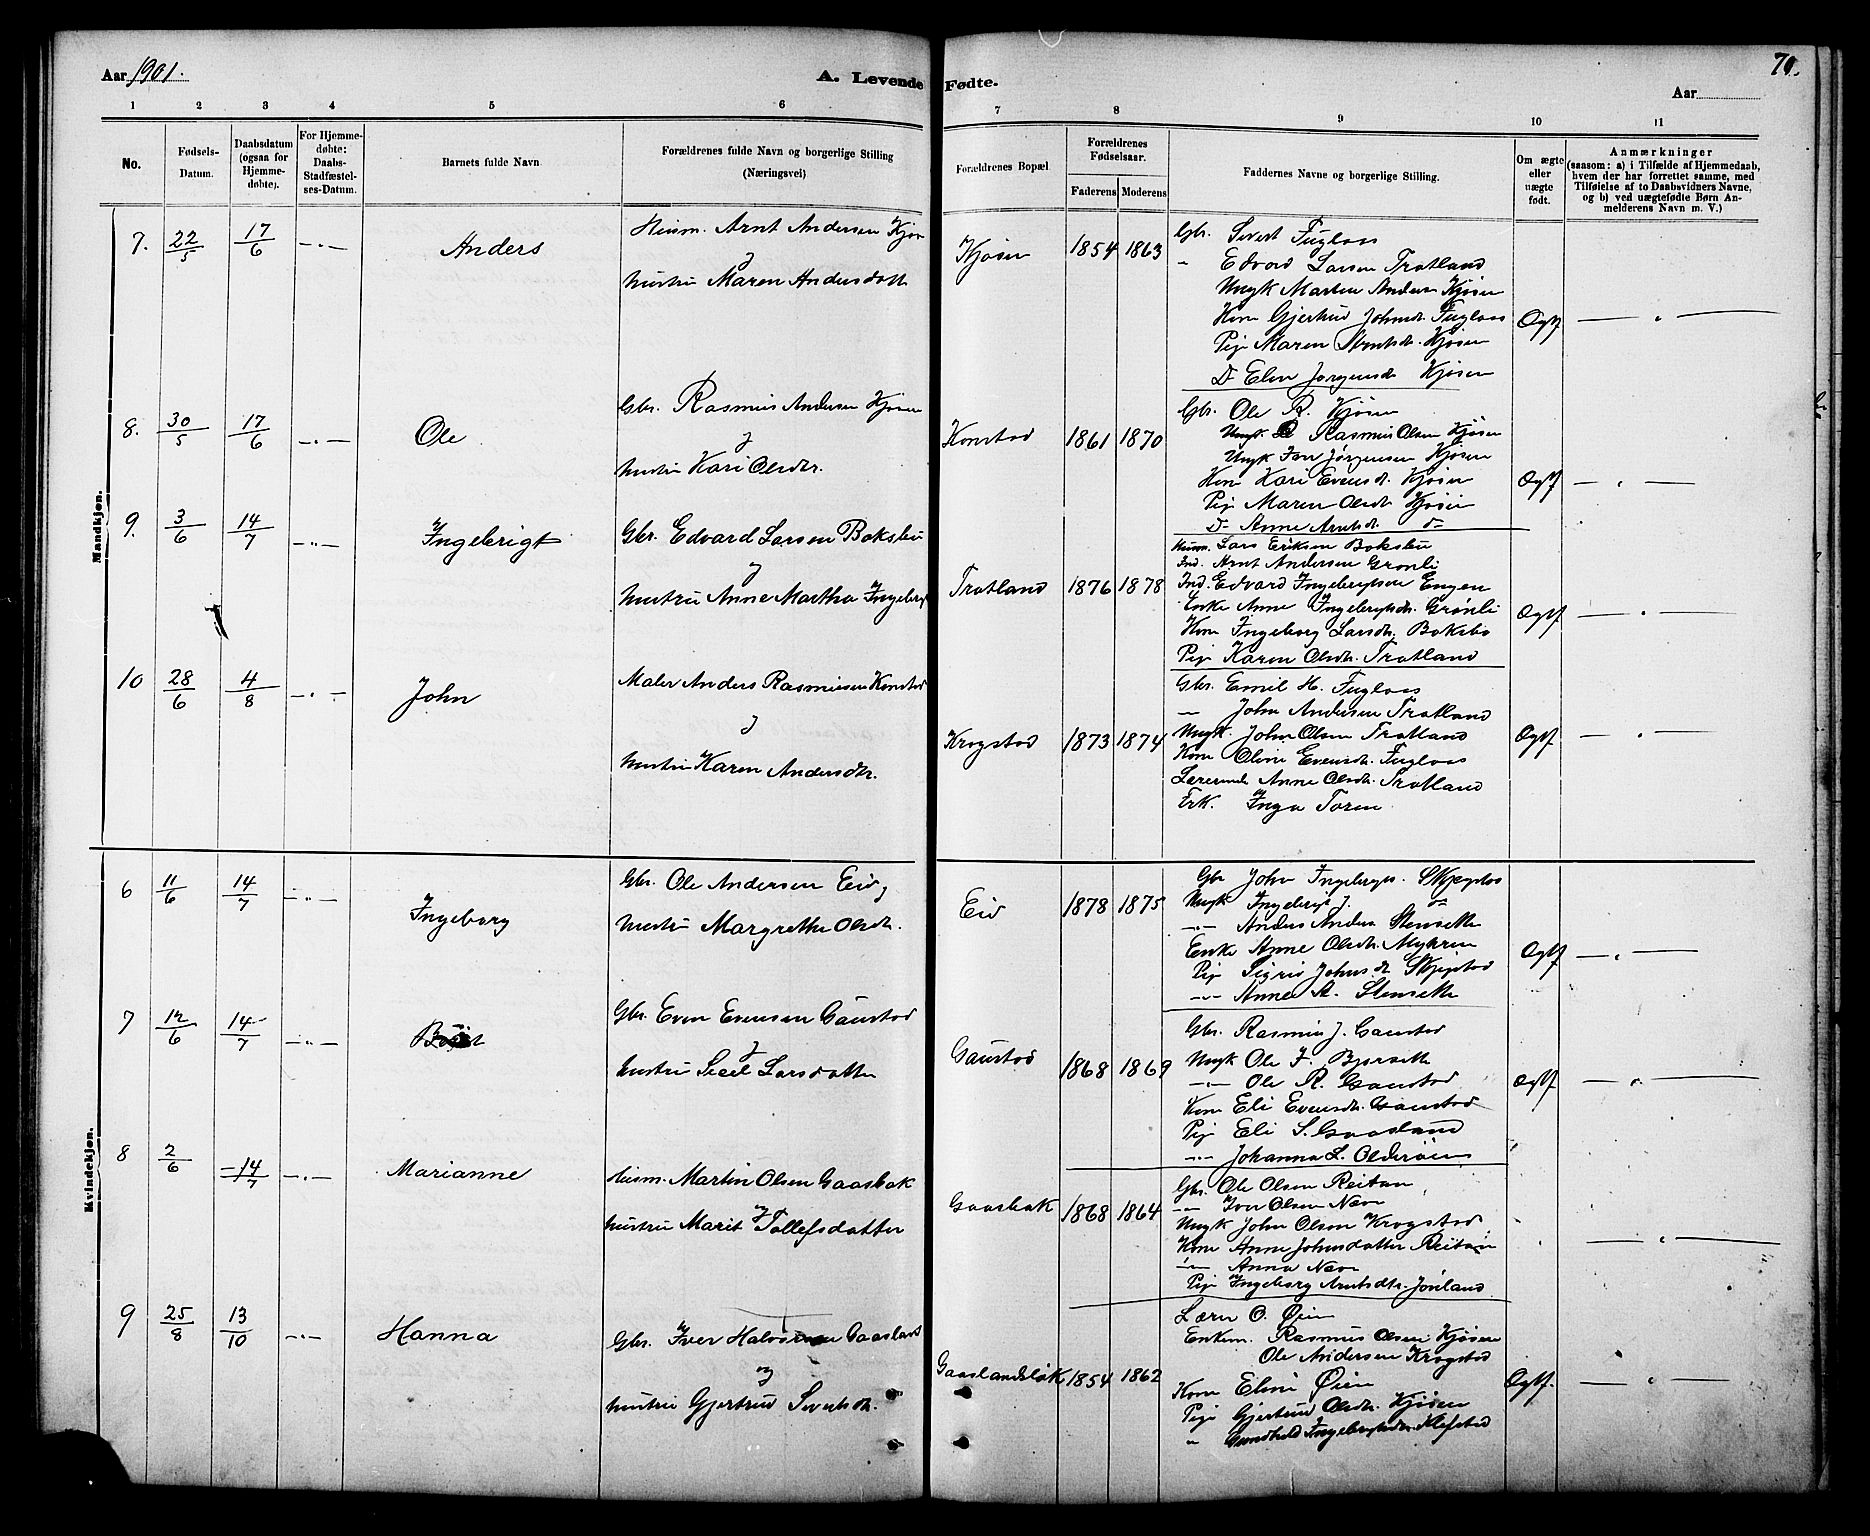 Aar 1901.
A. Levende Fødte.
Aar
70.
1 2 3 4 5 6 7 8 9 10 11
No.
Fødsels-Datum.
Daabsdatum (ogsaa for Hjemmedøbte).
For Hjemmedøbte: Daabs-Stadfæstelses-Datum.
Barnets fulde Navn
Forældrenes fulde Navn og borgerlige Stilling (Næringsvei)
Forældrenes Bopæl.
Forældrenes Fødselsaar.
Faderens Moderens
Faddernes Navne og borgerlige Stilling.
Om ægte eller uægte født.
Anmærkninger
(saasom: a) i Tilfælde af Hjemmedaab,
hvem der har forrettet samme, med
Tilføielse af to Daabsvidners Navne,
og b) ved uægtefødte Børn Anmelderens Navn m. V.)
Mandkjøn.
7. 22/5 17/6 -"- Anders
Husm. Arnt Andersen Kjøs
g
hustru Maren Andersdatt
Kjøsen 1854 1863
Gbr. Sivert Fuglaas
" Edvard Larsen Tratland
Ungk Marten Anders Kjøsen
Kone Gjertrud Johnsdt. Fuglaas
Pige Maren Arntsdt. Kjøsen
D- Elen Jørgensdt Kjøsen
Ægtf — " —
8. 30/5 17/6 -"- Ole
Gbr. Rasmus Andersen Kjøsen
g
hustru Kari Olsdtr.
Konstad 1861 1870
Gbr. Ole R. Kjøsen
Ungk. Rasmus Olsen Kjøsen
Ungk Iver Jørgensen Kjøsen
Kone Kari Evensdt. Kjøsen
Pige Maren Olsdt Kjøsen
D- Anne Arntsdt. do
Ægtf — " —
9. 3/6 14/7 -"- Ingebrigt
Gbr. Edvard Larsen Boksbu
g
hustru Anne Martha Ingebrigt
Tratland 1876 1878
Husm. Lars Eriksen Boksbu
Ind. Arnt Andersen Grønli
Ind. Edvard Ingebrigtsen Engen
Enke Anne Ingebrigtsdt. Grønli
Kone Ingeborg Larsdt. Boksbo
Pige Karen Olsdt. Tratland
Ægtf — " —
10 28/6 4/8 -"- John
Maler Anders Rasmusen Konstad
g
hustru Karen Andersdtr.
Krogstad 1873 1874
Gbr. Emil H. Fuglaas
-"- John Andersen Tratland
Ungk. John Olsen Tratland
Kone Oline Evensdt. Fuglaas
Lærerinde Anne Olsdt. Tratland
Frk. Inga Toren
Ægtf. — " —
Kvindekjøn.
6 11/6 14/7 -"- Ingeborg
Gbr. Ole Andersen Eid g
hustru Margrethe Olsdt.
Eid 1878 1875
Gbr John Ingebrigts. Skjepstad
Ungk Ingebrigt J. do
-"- Anders Anders Stensette
Enke Anne Olsdt. Myhren
Pige Sigrid Johnsdt Skjepstad
-"- Anne A. Stensette
Ægtf — " —
7 12/6 14/7 -"-
Gbr. Even Evensen Gaustad
g
hustru Sicel Larsdatter
Gaustad 1868 1869
Gbr. Rasmus J. Gaustad
Ungk Ole J. Bjørsett
-"- Ole R. Gaustad
Kone Eli Evensdt. Gaustad
Pige Eli S. Gaasland
-"- Johanna L. Olderøien
Ægtf — " —
8 2/6 14/7 -"- Marianne
Husm. Martin Olsen Gaasbak
g
hustru Marit Tollefsdatter
Gaasbak 1868 1864
Gbr. Ole Olsen Reitan
-"- Iver Olsen Næv
Ungk John Olsen Krogstad
Kone Anne Johnsdatter Reitan
-"- Anna Næv
Pige Ingeborg Arntsdtr. Joviland
— " —
9 25/8 13/10 -"- Hanna
Gbr. Iver Halvorsen Gaasland
og
hustru Gjertrud Sivertsdt.
Gaaslandsløk 1854 1862
Lærer O. Øien
Enkem. Rasmus Olsen Kjøsen
Ole Andersen Krogstad
Kone Eline Øien
Pige Gjertrud Olsdt. Kjøsen
" Gundhild Ingebrigtsdtr. Klefstad
Ægtf. — " —